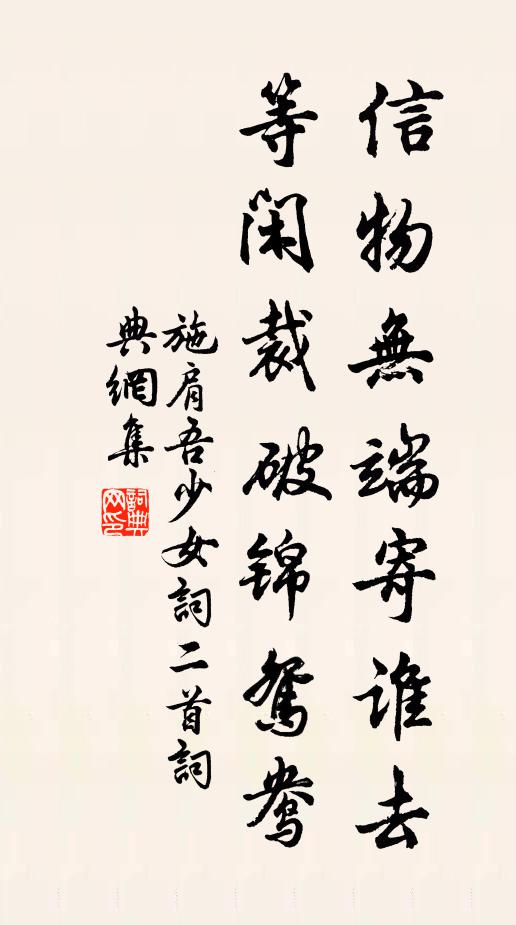 信物無端寄誰去
等閑裁破錦鴛鴦
施肩吾少女詞二首詞
典網集
詞典網印